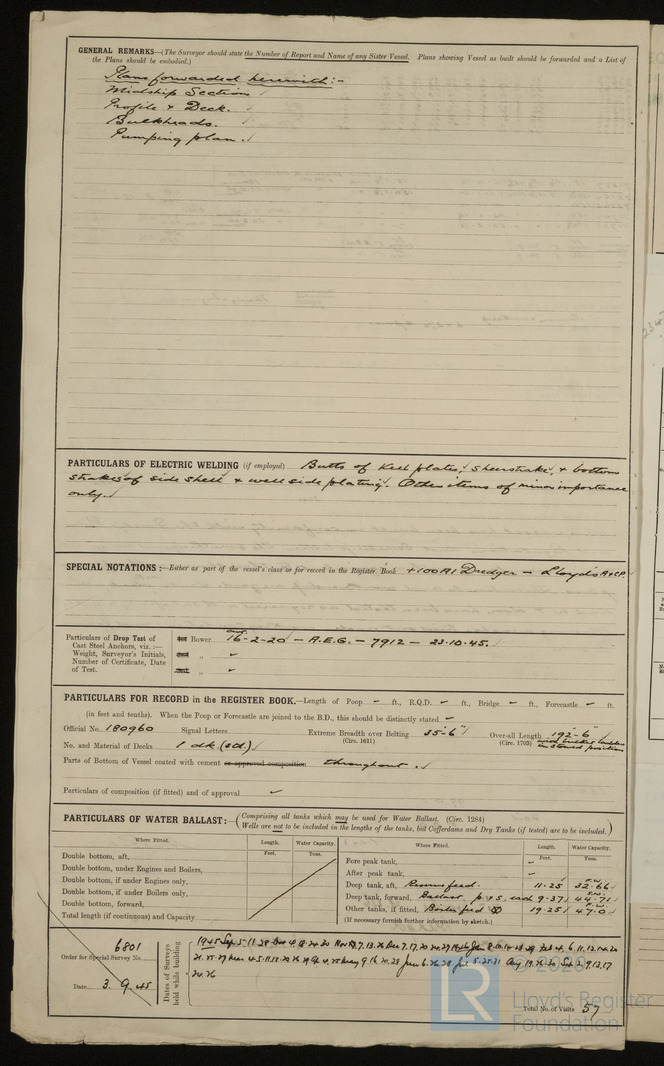 GENERAL REMARKS—(The Surveyor should state the Number of Report and Name of any Sister Vessel. Plans showing Vessel as built should be forwarded and a List of
the Plans should be embodied.)
Plans forwarded herewith:-
Midship Section ✓
Profile & Deck. ✓
Bulkheads. ✓
Pumping plan. ✓
PARTICULARS OF ELECTRIC WELDING (if employed) Butts of Keel plates, sheerstrake, & bottom
strakes of side shell & well side plating. Other items of minor importance
only.
SPECIAL NOTATIONS:—Either as part of the vessel's class or for record in the Register Book +100A1 Dredger — Lloyd's A & C.P.
Particulars of Drop Test of
Cast Steel Anchors, viz.:—
Weight, Surveyor's Initials,
Number of Certificate, Date
of Test.
Bower 16-2-20 — A.E.G. — 7912 — 23.10.45.
„
„
PARTICULARS FOR RECORD in the REGISTER BOOK.—Length of Poop – ft., R.Q.D. – ft., Bridge – ft., Forecastle – ft.
(in feet and tenths). When the Poop or Forecastle are joined to the B.D., this should be distinctly stated
Official No. 180960 Signal Letters Extreme Breadth over Belting 35'-6" Over-all Length 192'-6"
(Circ. 1611) (Circ. 1703) with bucket ladder in stowed position
No. and Material of Decks 1 dk (stl)
Parts of Bottom of Vessel coated with cement or approved composition throughout.
Particulars of composition (if fitted) and of approval
PARTICULARS OF WATER BALLAST:—(Comprising all tanks which may be used for Water Ballast. (Circ. 1284)
Wells are not to be included in the lengths of the tanks, but Cofferdams and Dry Tanks (if tested) are to be included.)
Where Fitted. Length. Water Capacity. Where Fitted. Length. Water Capacity.
Feet. Tons. Feet. Tons.
Double bottom, aft,
Double bottom, under Engines and Boilers,
Double bottom, if under Engines only,
Double bottom, if under Boilers only,
Double bottom, forward,
Total length (if continuous) and Capacity
Fore peak tank, –
After peak tank, –
Deep tank, aft, feed. 11.25 F.W. 32.66
Deep tank, forward, Ballast p & s. each 9.37 S.W. 44.71
Other tanks, if fitted, Boiler feed 19.25 F.W. 47.0
(If necessary furnish further information by sketch.)
Order for Special Survey No. 6801
Date 3.9.45
Dates of Surveys
held while building
1945 Sep
Total No. of Visits 57
© 2020
LR
Lloyd's Register
Foundation